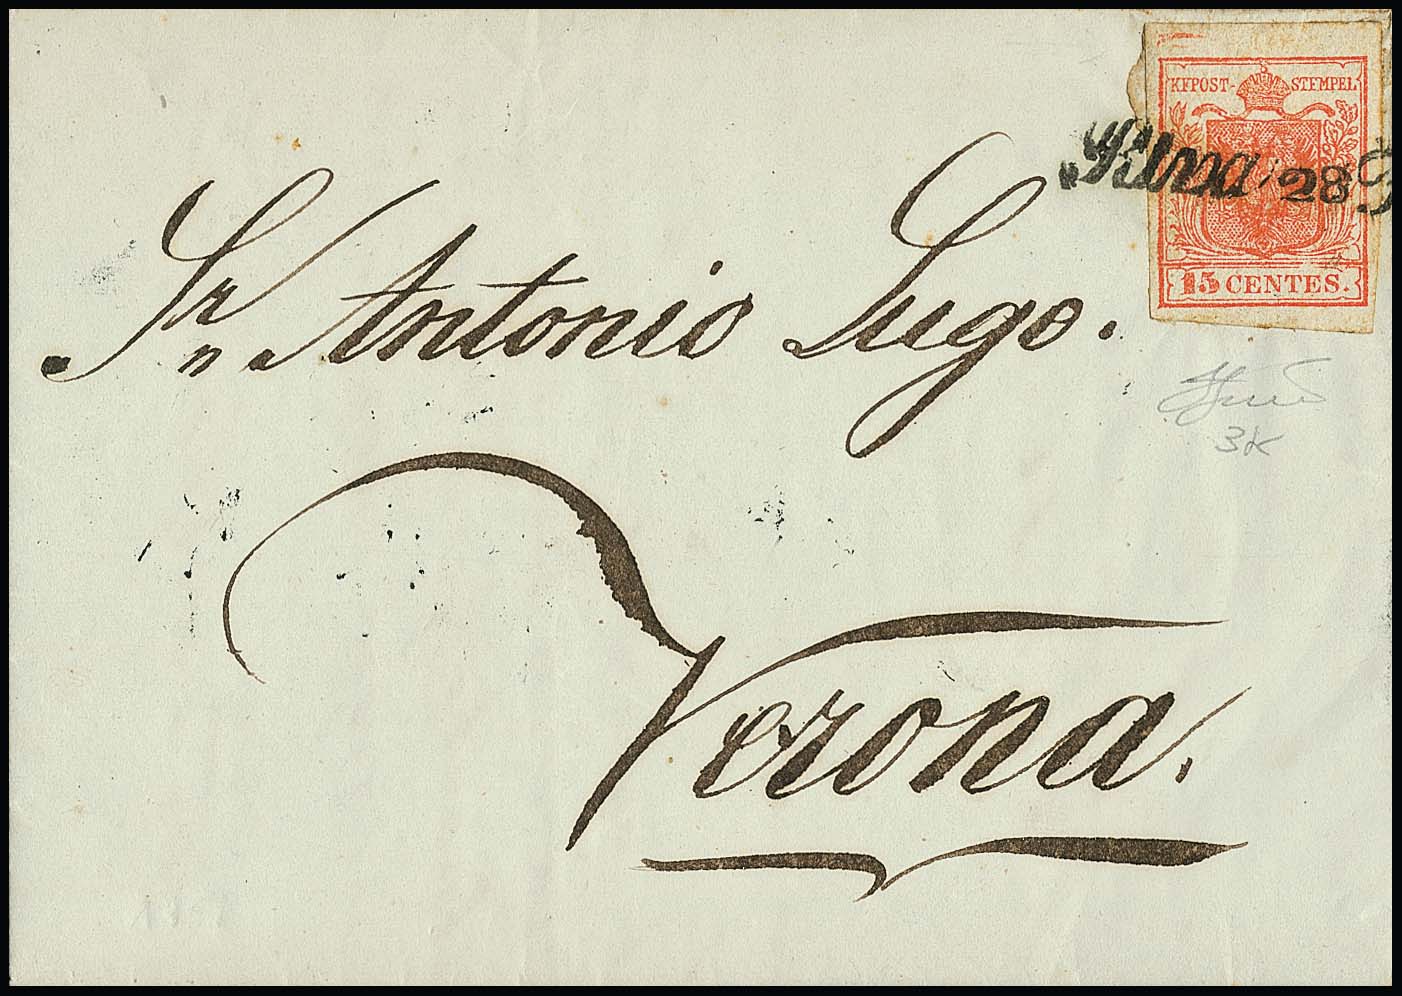 KKPOST-STEMPEL
Riva 28
15 CENTES.
Sr Antonio Lugo.
3K
Verona.